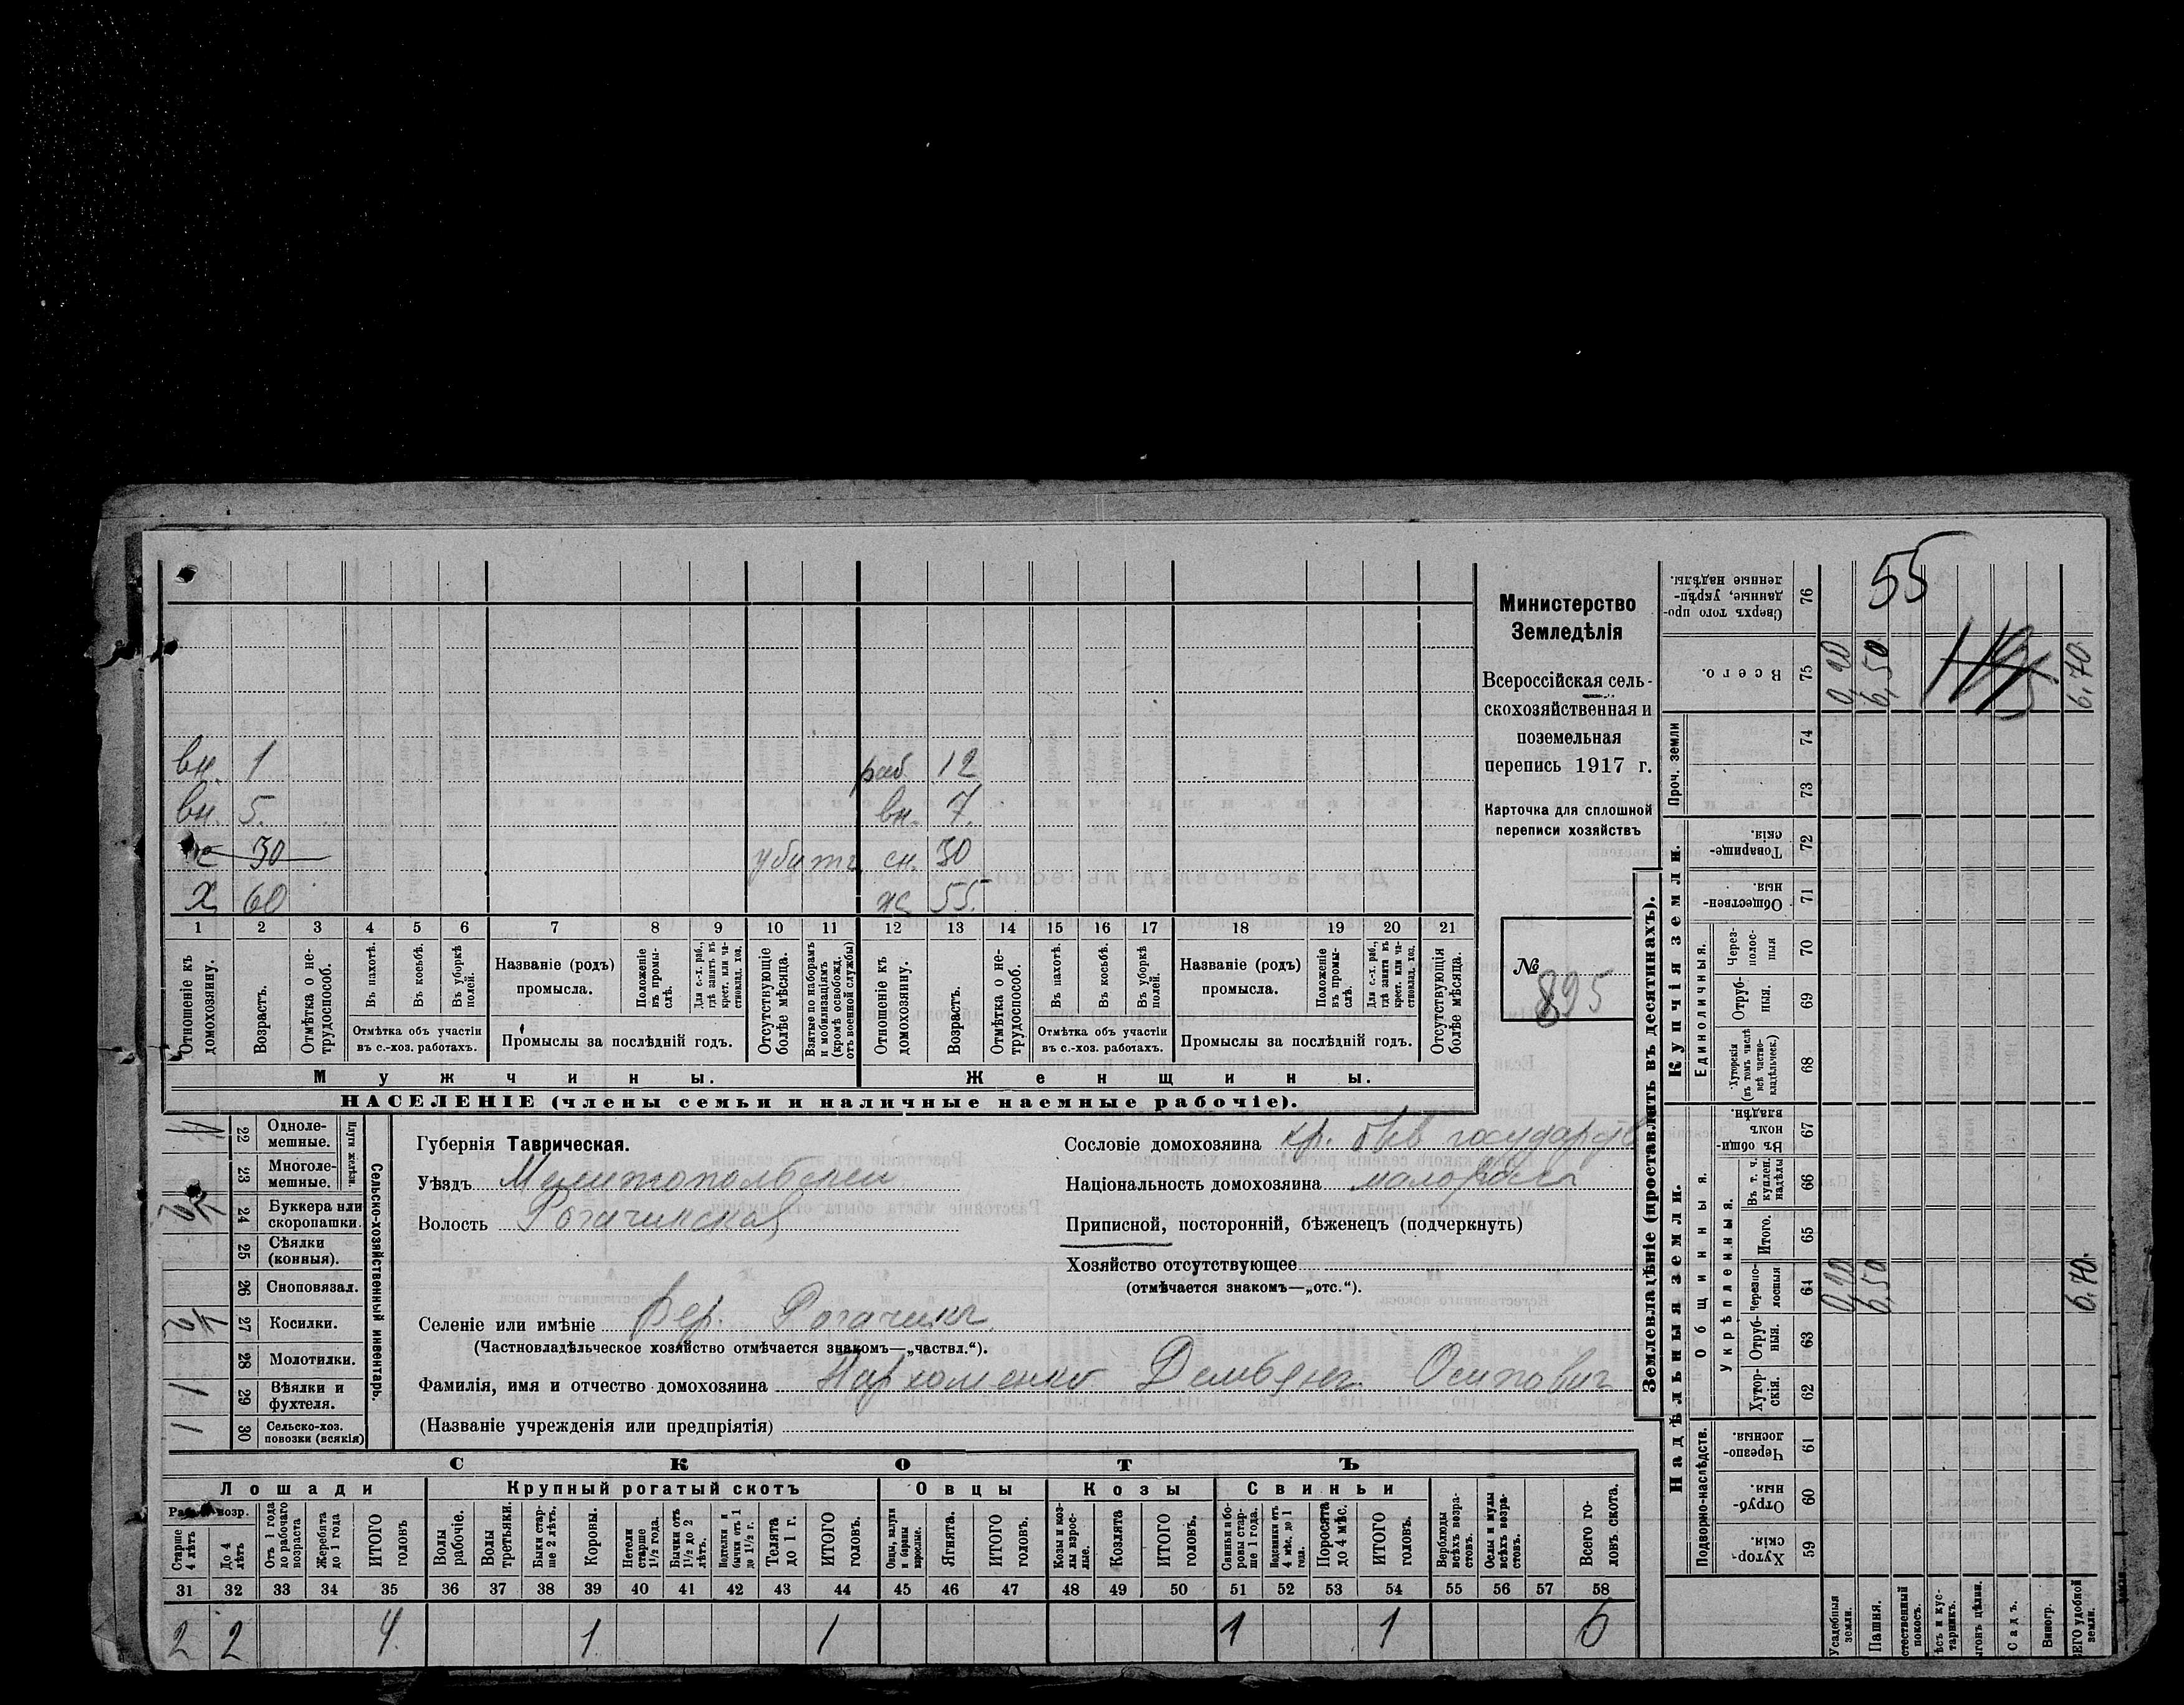 55
вн. 1 раб 12
вн. 5. вн. 7.
30 убитъ сн. 30
Х 60 ж 55.
1 2 3 4 5 6 7 8 9 10 11 12 13 14 15 16 17 18 19 20 21
Отношеніе къ домохозяину.
Возрастъ.
Отмѣтка о нетрудоспособ.
Въ пахотѣ.
Въ косьбѣ.
Въ уборкѣ полей.
Отмѣтка объ участіи въ с.-хоз. работахъ.
Названіе (родъ) промысла.
Положеніе въ промыслѣ.
Для с.-х. раб., гдѣ занятъ въ крест. или частновлад. хоз.
Промыслы за послѣдній годъ.
Отсутствующіе болѣе мѣсяца.
Взятые по наборамъ и мобилизаціямъ (кромѣ освобожд. отъ военной службы)
Отношеніе къ домохозяину.
Возрастъ.
Отмѣтка о нетрудоспособ.
Въ пахотѣ.
Въ косьбѣ.
Въ уборкѣ полей.
Отмѣтка объ участіи въ с.-хоз. работахъ.
Названіе (родъ) промысла.
Положеніе въ промыслѣ.
Для с.-х. раб., гдѣ занята въ крест. или частновлад. хоз.
Промыслы за послѣдній годъ.
Отсутствующія болѣе мѣсяца.
Мужчины. Женщины.
НАСЕЛЕНІЕ (члены семьи и наличные наемные рабочіе).
Министерство
Земледѣлія
Всероссійская сель-
скохозяйственная и
поземельная
перепись 1917 г.
Карточка для сплошной
переписи хозяйствъ
№ 895
Сельско-хозяйственный инвентарь.
Плуги желѣзн.
22 Одноле-
мешные.
23 Многоле-
мешные.
24 Буккера или
скоропашки.
25 Сѣялки
(конныя).
26 Сноповязал.
27 Косилки.
28 Молотилки.
1 29 Вѣялки и
фухтеля.
1 30 Сельско-хоз.
повозки (всякія)
Губернія Таврическая.
Уѣздъ Мелитопольскій
Волость Рогачинская
Селеніе или имѣніе Вер. Рогачикъ
(Частновладѣльческое хозяйство отмѣчается знакомъ—„частвл.“).
Фамилія, имя и отчество домохозяина Пархоменко Демьянъ Осипович
(Названіе учрежденія или предпріятія)
Сословіе домохозяина кр. быв государств
Національность домохозяина малороссъ
Приписной, посторонній, бѣженец (подчеркнуть)
Хозяйство отсутствующее
(отмѣчается знакомъ—„отс.“).
СКОТЪ
Лошади Крупный рогатый скотъ Овцы Козы Свиньи
Старше 4 лѣтъ
До 4 лѣтъ
Отъ 1 года до рабочаго возраста
Жеребята до 1 года
ИТОГО головъ
Волы рабочіе.
Волы третьяки.
Быки старше 2 лѣтъ.
Коровы.
Нетели старше 1½ года.
Бычки отъ 1½ до 2 лѣтъ.
Подтелки и бычки отъ 1 до 1½ г.
Телята до 1 г.
ИТОГО головъ.
Овцы, валухи и бараны взрослые.
Ягнята.
ИТОГО головъ.
Козы и козлы взрослые.
Козлята
ИТОГО головъ.
Свиньи и боровы старше 1 года.
Подсвинки отъ 4 мѣс. до 1 года.
Поросята до 4 мѣс.
ИТОГО головъ.
Верблюды всѣхъ возрастовъ.
Ослы и мулы всѣхъ возрастовъ.
Всего головъ скота.
31 32 33 34 35 36 37 38 39 40 41 42 43 44 45 46 47 48 49 50 51 52 53 54 55 56 57 58
2 2 4. 1 1 1 1 6
Землевладѣніе (проставлять въ десятинахъ).
Надѣльныя земли. Купчія земли. Проч. земли
Подворно-наслѣдств. Общинныя. Укрѣпленныя. Единоличныя.
Сверхъ того проданные, укрѣпленные надѣлы. 76
Всего. 75 6,50 6,70
74
73
Товарищескія. 72
Общественныя 71
Черезполосныя 70
Отрубныя. 69
Хуторскія (въ томъ числѣ всѣ частновладѣльческ.) 68
Въ общинномъ владѣн. 67
Въ т. ч. куплен. надѣлы 66
Итого. 65
Черезполосныя 64 6,50 6,70.
Отрубныя. 63
Хуторскія. 62
Черезполосныя 61
Отрубныя. 60
Хуторскія. 59
Усадебныя земли.
Пашня.
Садъ.
Виногр.